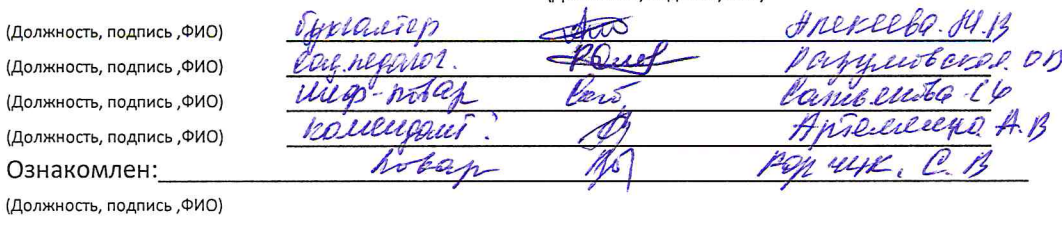 (Должность, подпись ,ФИО) бухгалтер Алексеева. М.В
(Должность, подпись ,ФИО) соц.педагог. Разумовская О В
(Должность, подпись ,ФИО) шеф-повар
(Должность, подпись ,ФИО) комендант. А.В
Ознакомлен: повар С. В
(Должность, подпись ,ФИО)